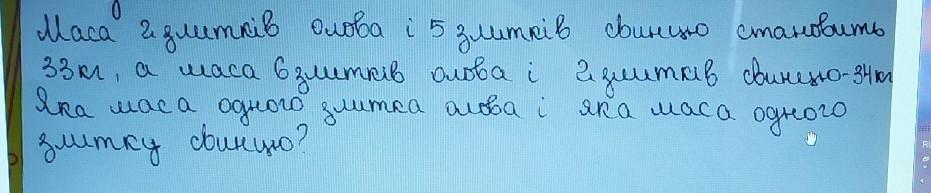 Маса 2 злитків олова і 5 злитків свинцю становить
33кг, а маса 6 злитків олова і 2 злитків свинцю-34кг
Яка маса одного злитка олова і яка маса одного
злитку свинцю?